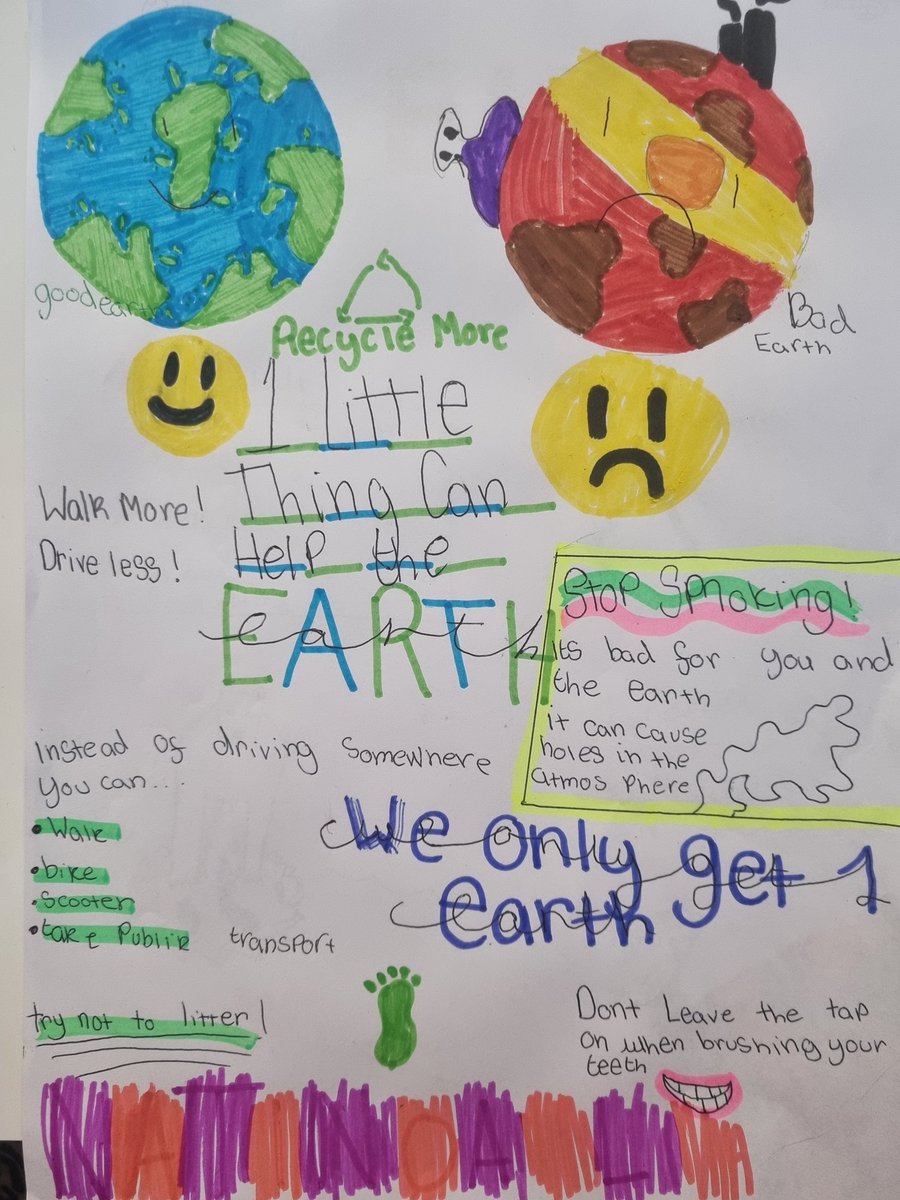 good earth
Bad
Earth
Recycle More
1 Little
Thing Can
Help the
EARTH
Walk More!
Drive less!
Stop Smoking!
its bad for you and
the earth
it can cause
holes in the
atmos phere
instead of driving somewhere
you can....
• Walk
• bike
• Scooter
• take Public transport
We only get 1
earth
try not to litter!
Dont Leave the tap
on when brushing your
teeth